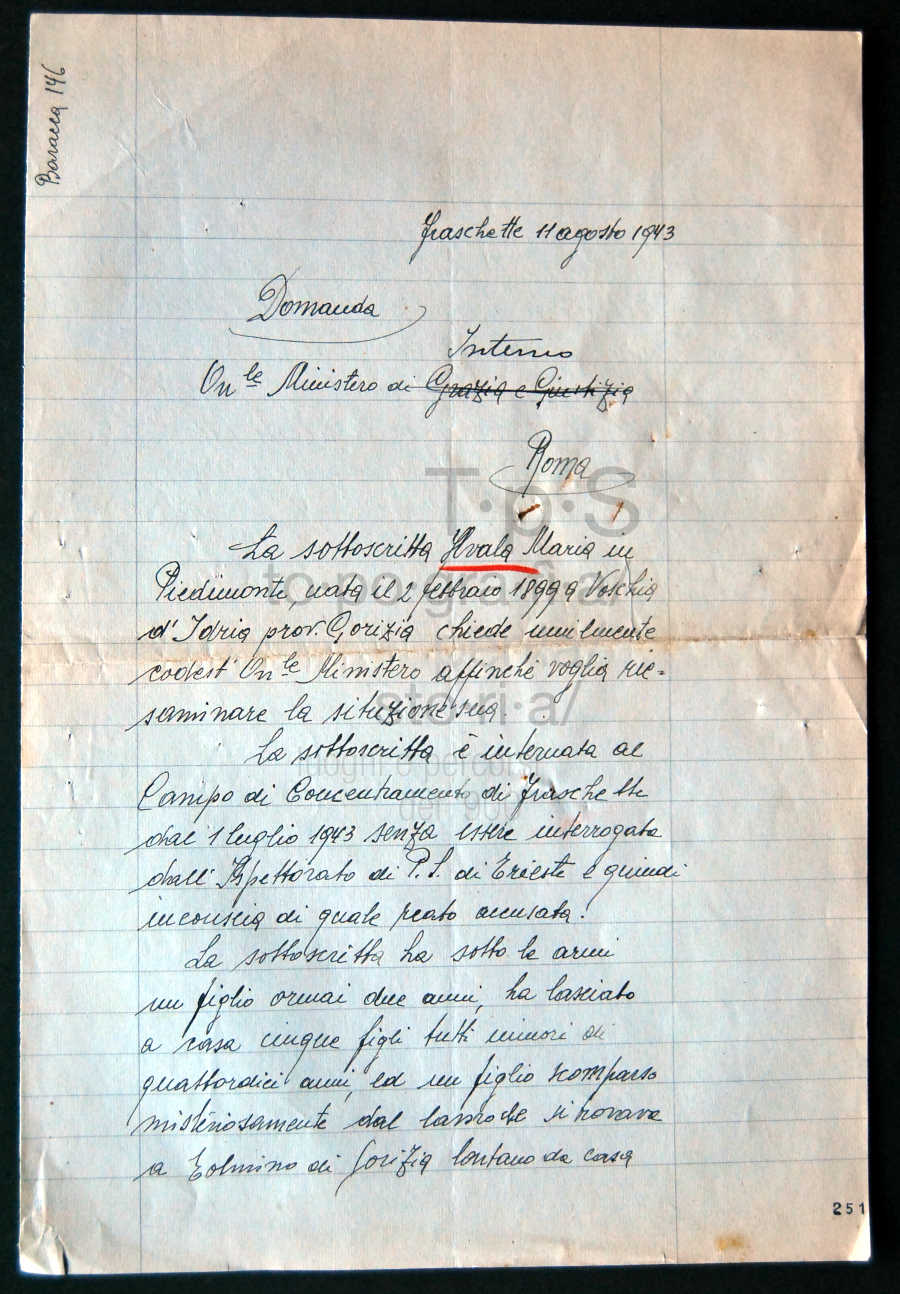 Baracca 146
Fraschette 11 agosto 1943
Domanda
Interno
On.le Ministero di Grazia e Giustizia
Roma
T·p·S
to·po·grafia/
La sottoscritta Hvala Maria in
Piedimonte, nata il 2 febbraio 1899 a Voschia
d'Idria prov. Gorizia chiede umilmente
codest' On.le Ministero affinchè voglia rie=
saminare la situzione sua.
sto·ri·a/
La sottoscritta è internata al
Campo di Concentramento di Fraschette
dal 1 luglio 1943 senza essere interrogata
dall' Ispettorato di P.S. di Trieste e quindi
inconscia di quale reato accusata.
La sottoscritta ha sotto le armi
un figlio ormai due anni, ha lasciato
a casa cinque figli tutti minori di
quattordici anni, ed un figlio scomparso
misteriosamente dal si trovava
a Tolmino di Gorizia lontano da casa
251